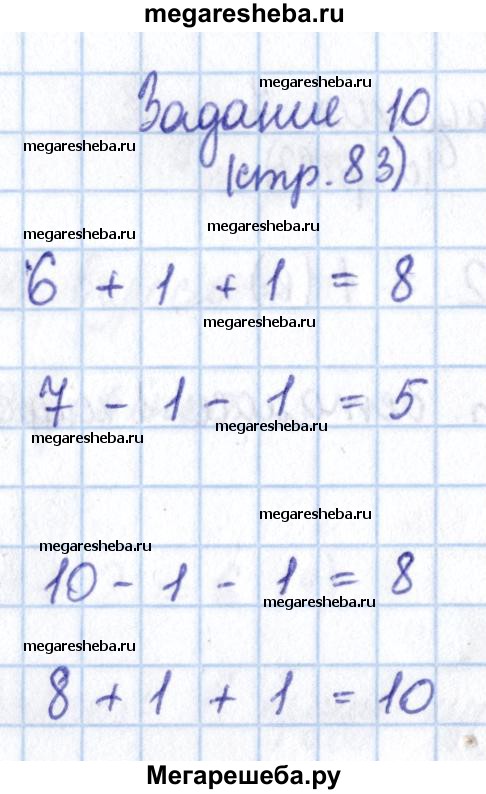 megaresheba.ru
megaresheba.ru
Задание 10
megaresheba.ru
(стр. 83)
megaresheba.ru
megaresheba.ru
6 + 1 + 1 = 8
megaresheba.ru
7 - 1 - 1 = 5
megaresheba.ru
megaresheba.ru
megaresheba.ru
megaresheba.ru
10 - 1 - 1 = 8
megaresheba.ru
megaresheba.ru
8 + 1 + 1 = 10
Мегарешеба.ру